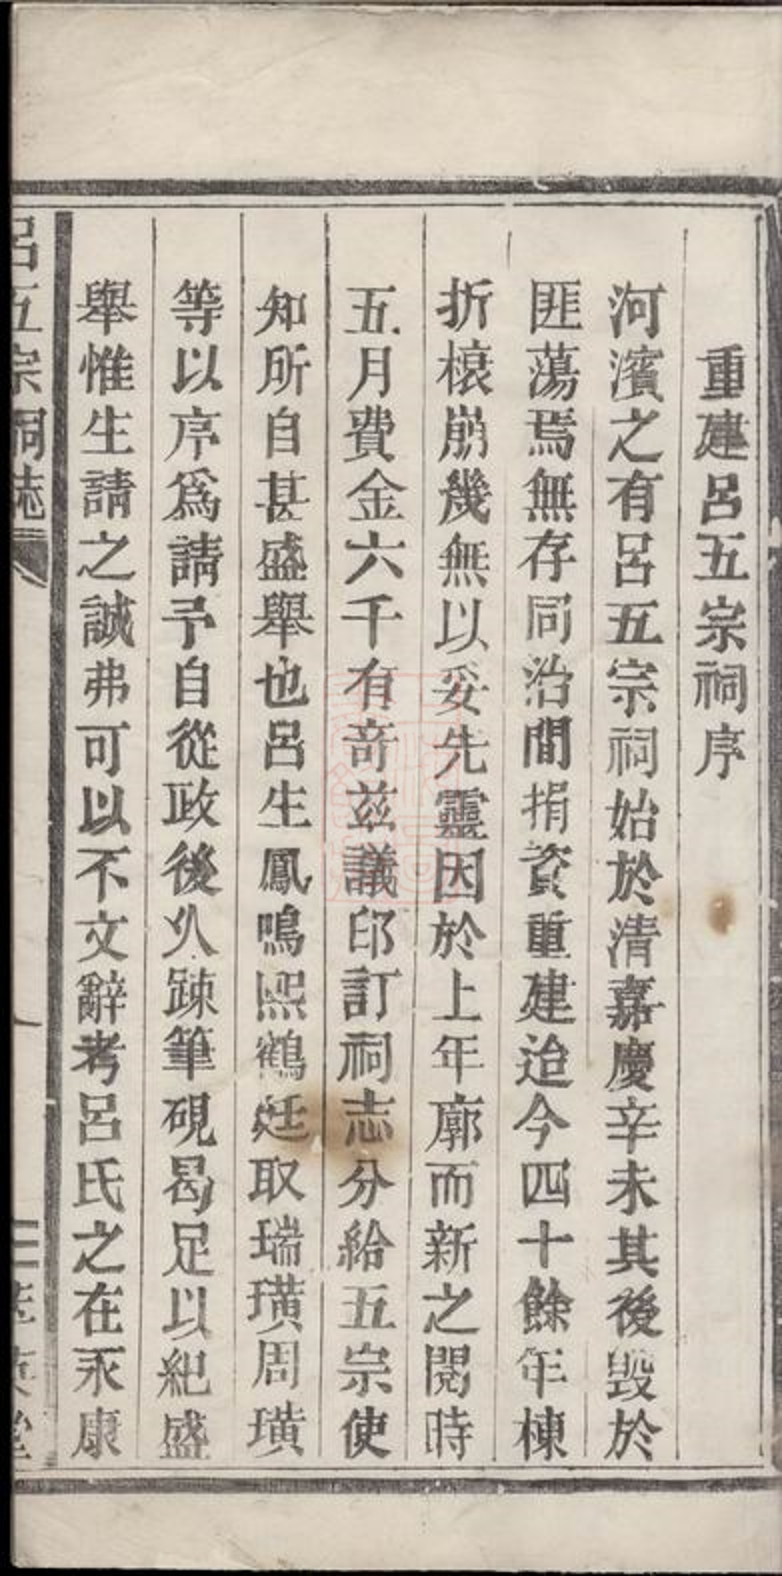 重建呂五宗祠序
河濱之有呂五宗祠始於清嘉慶辛未其後毀於
匪蕩焉無存同治間捐資重建迨今四十餘年棟
折榱崩幾無以妥先靈因於上年廓而新之閱時
五月費金六千有奇茲議印訂祠志分給五宗使
知所自甚盛舉也呂生鳳鳴熙鶴廷取瑞璜周璜
等以序爲請予自從政後久踈筆硯曷足以紀盛
舉惟生請之誠弗可以不文辭考呂氏之在永康
呂五宗祠誌